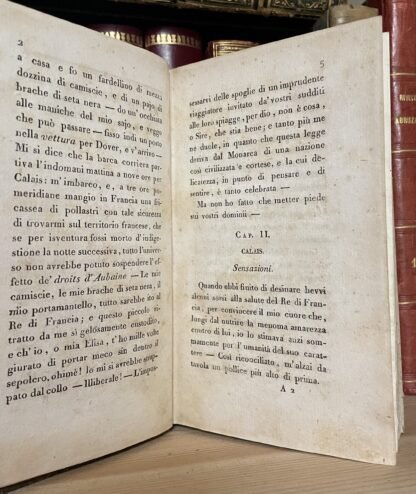 2
a casa e fo un fardellino di mezza
dozzina di camiscie, e di un pajo di
brache di seta nera — do un'occhiata
alle maniche del mio sajo, e veggo
che può passare — fisso indi un posto
nella vettura per Dover, e v'arrivo —
Mi si dice che la barca corriera par-
tiva l'indomani mattina a nove ore per
Calais: m'imbarco, e, a tre ore po-
meridiane mangio in Francia una fri-
cassea di pollastri con tale sicurezza
di trovarmi sul territorio francese, che
se per isventura fossi morto d'indige-
stione la notte successiva, tutto l'univer-
so non avrebbe potuto sospendere l'ef-
fetto de' droits d'Aubaine — Le mie
camiscie, le mie brache di seta nera, il
mio portamantello, tutto sarebbe ito al
Re di Francia; e questo piccolo ri-
tratto da me sì gelosamente custodito,
e ch'io, o mia Elisa, t'ho mille volte
giurato di portar meco sin dentro il
sepolcro, ohimè! lo mi si avrebbe strap-
pato dal collo — Illiberale! — L'impos-
5
sessarvi delle spoglie di un imprudente
viaggiatore invitato da' vostri sudditi
alle loro spiagge, per dio, non è cosa,
e Sire, che stia bene; e tanto più me
ne duole, in quanto che questa legge
deriva dal Monarca di una nazione
così civilizzata e cortese, e la cui de-
licatezza, in punto di pensare e di
sentire, è tanto celebrata —
Ma non ho fatto che metter piede
sui vostri dominii —
CAP. II.
CALAIS.
Sensazioni.
Quando ebbi finito di desinare bevvi
alcuni sorsi alla salute del Re di Fran-
cia, per convincere il mio cuore che,
lungi dal nutrire la menoma amarezza
contro di lui, io lo stimava anzi som-
mamente per l'umanità del suo carat-
tere — Così riconciliato, m'alzai da
tavola un pollice più alto di prima.
A 2